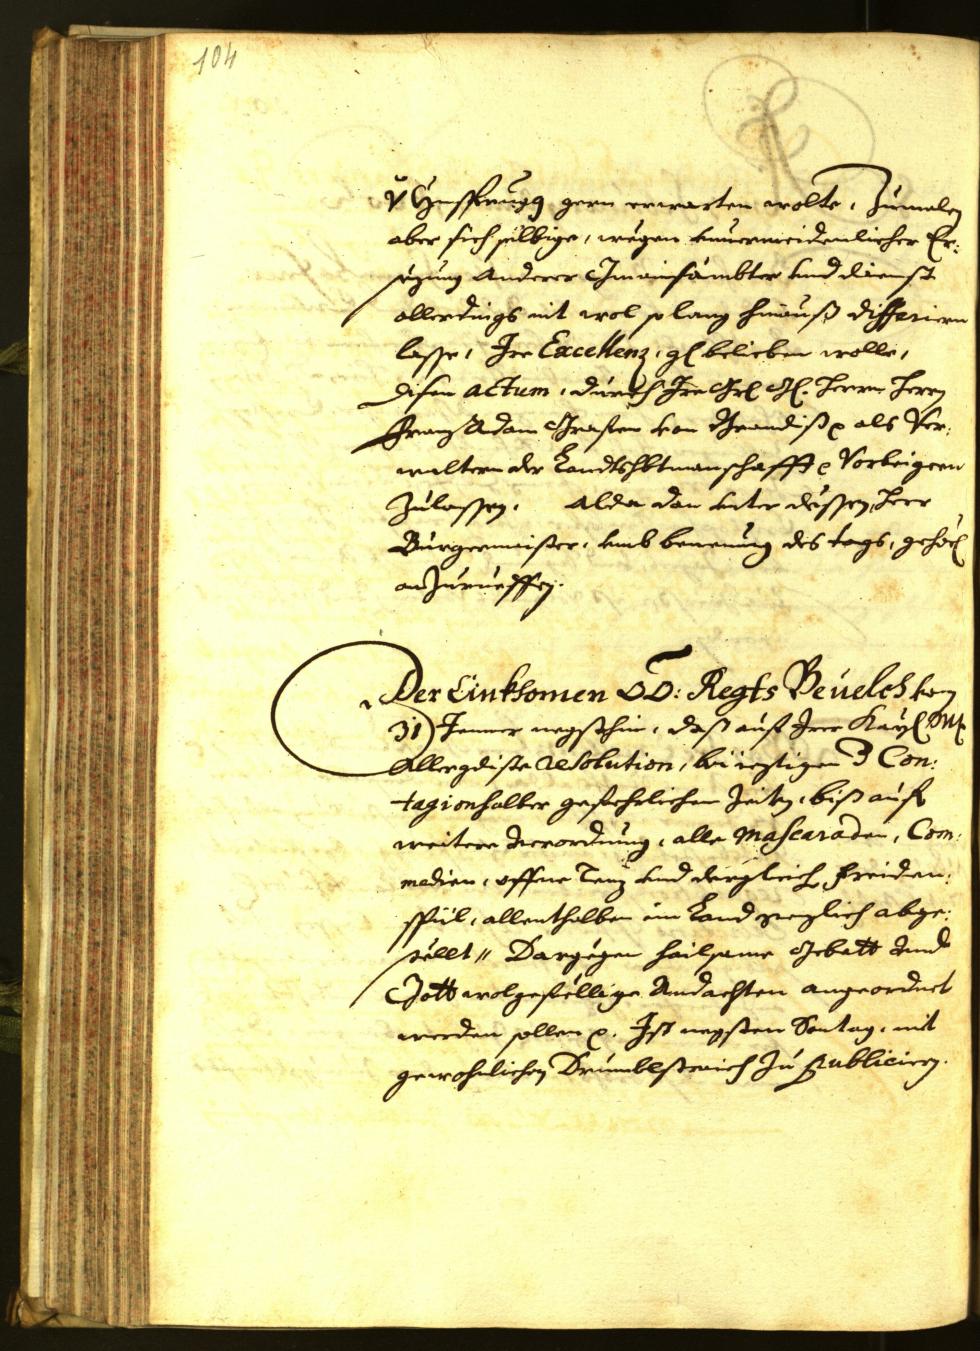 104
v Ynsprugg gern erwarten wolte, Zumalen
aber sich selbige, wegen unvermeidenlicher Er-
sezung Anderer Gmainsämbter und dienst
allerdings nit wol so lang hinauß differiern
lasse, Ire Excellenz, gl belieben wolle,
disen actum, durch Ire Grl Gl. Herrn Herrn
Franz Adam Grafen von Brandiß als Ver-
waltern der Landtshbtmanschafft Vorbeigeen
Zulassen. Alda dan unter dessen Herr
Burgermaister, umb benennung des tags, gehörl
anzurueffen.
Der Einkhomen OÖ: Regts Bevelch von
31 Jenner negsthin, daß auf Irer Kayl Mt
Allergdiste resolution, bei iezigen Con-
tagionhalber gefehrlichen Zeiten, biß auf
weitere Verordnung, alle Mascaraden, Com-
medien, offne Tenz und dergleich freiden-
spiil, allenthalben im Land genzlich abge-
stellt // Dargegen hailsame Gebett und
Gott wolgefellige Andachten angeordnet
werden sollen. Ist negsten Sontag, mit
gewohnlichen Drumblstraich Zu publiciern.